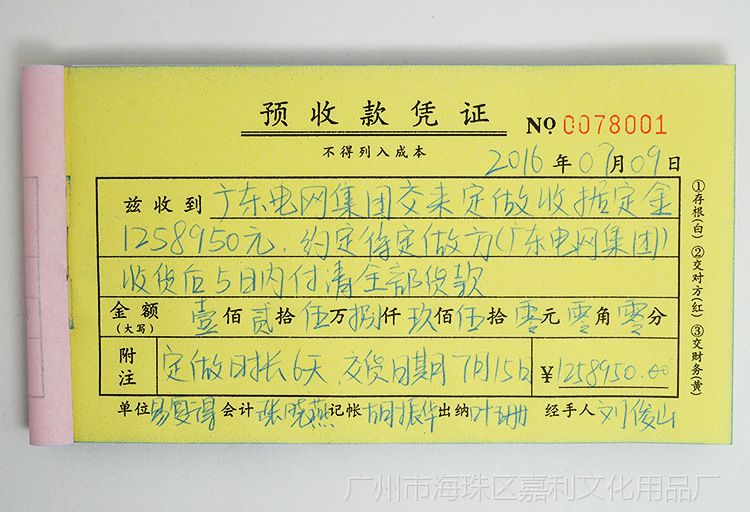 预收款凭证
№ 0078001
不得列入成本
2016年07月09日
兹收到广东电网集团交来定做收据定金
1258950元，约定待定做方(广东电网集团)
收货后5日内付清全部货款
金额(大写) 壹佰贰拾伍万捌仟玖佰伍拾零元零角零分
附注 定做时长6天，交货日期7月15日 ¥1258950.00
单位易复得 会计张晓燕 记帐胡振华 出纳叶珊 经手人刘俊山
①存根(白) ②交对方(红) ③交财务(黄)
广州市海珠区嘉利文化用品厂